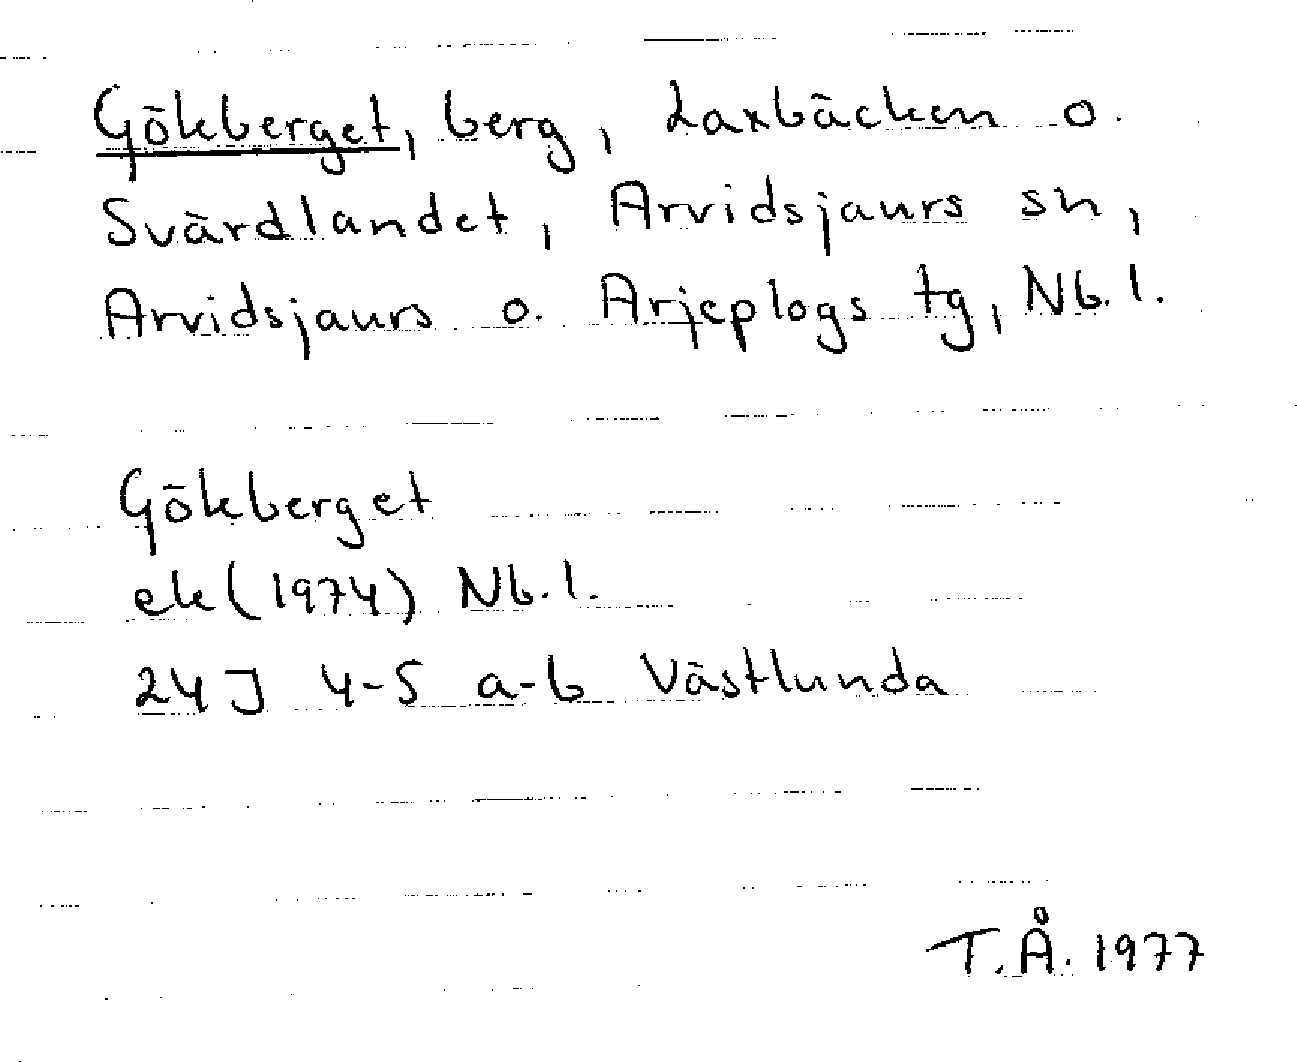 Gökberget, berg, Laxbäcken o.
Svärdlandet, Arvidsjaurs sn,
Arvidsjaurs o. Arjeplogs tg, Nb. l.
Gökberget
ek (1974) Nb. l.
24 J 4-5 a-b Västlunda
T. Å. 1977